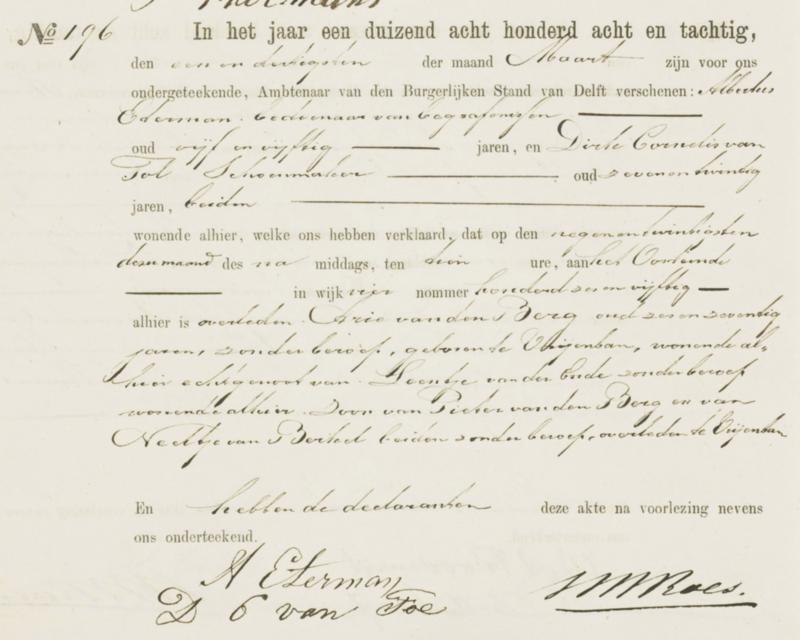 No 196 In het jaar een duizend acht honderd acht en tachtig,
den een en dertigsten der maand Maart zijn voor ons
ondergeteekende, Ambtenaar van den Burgerlijken Stand van Delft verschenen: Albertus
Eterman, bedienaar van begrafenissen
oud vijf en vijftig jaren, en Dirk Cornelis van
Tol Schoenmaker oud zeven en twintig
jaren, beiden
wonende alhier, welke ons hebben verklaard, dat op den negen en twintigsten
dezer maand des na middags, ten tien ure, aan het Oosteinde
in wijk vier nommer honderd zes en vijftig
alhier is overleden Arie van den Berg oud zes en zeventig
jaren, zonder beroep, geboren te Vrijenban, wonende al-
hier echtgenoot van Leentje van der Ende zonder beroep
wonende alhier. Zoon van Pieter van den Berg en van
Neeltje van Berkel beiden zonder beroep, overleden te Vrijenban
En hebben de declaranten deze akte na voorlezing nevens
ons onderteekend.
A Eterman
D C van Tol